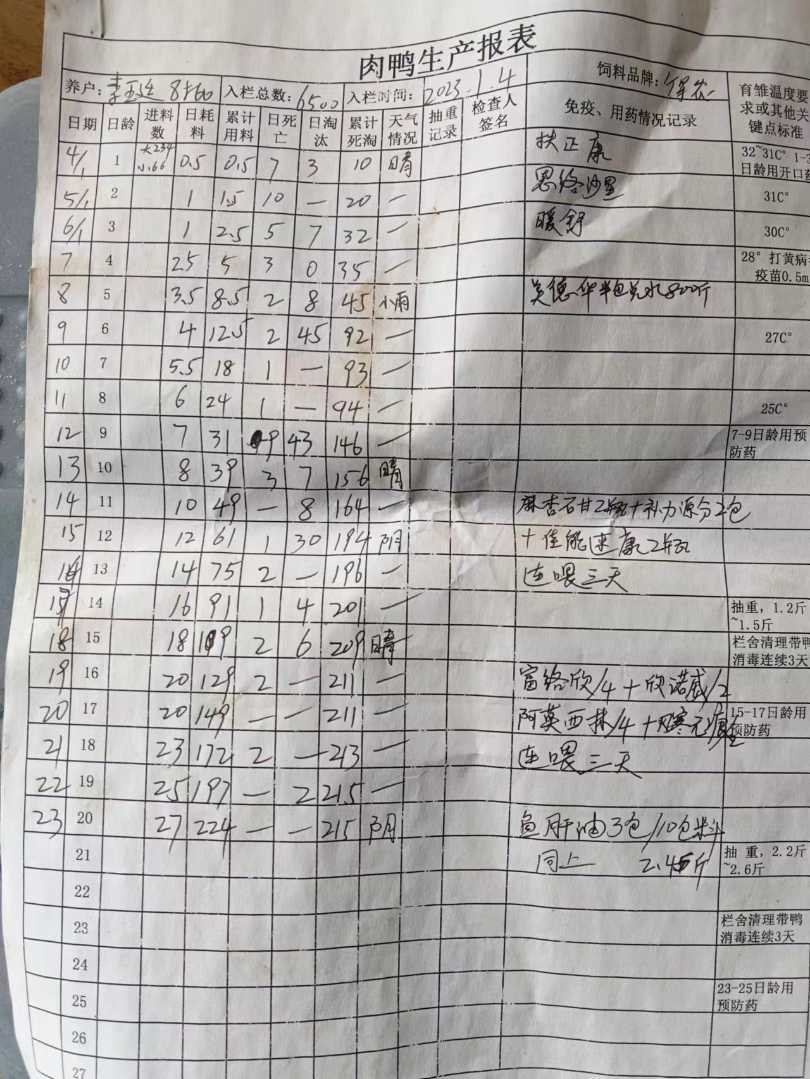 肉鸭生产报表
养户: 入栏总数:6500 入栏时间:2023.1.4 饲料品牌: 育雏温度要求或其他关键点标准
日期 日龄 进料数 日耗料 累计用料 日死亡 日淘汰 累计死淘 天气情况 抽重记录 检查人签名 免疫、用药情况记录
4/1 1 大234 小66 0.5 0.5 7 3 10 晴 扶正康 32~31C° 1-3日龄用开口药
5/1 2 1 1.5 10 — 20 — 恩络沙星 31C°
6/1 3 1 2.5 5 7 32 — 暖舒 30C°
7 4 2.5 5 3 0 35 — 28° 打黄病 疫苗0.5m
8 5 3.5 8.5 2 8 45 小雨 半包兑水800斤
9 6 4 12.5 2 45 92 — 27C°
10 7 5.5 18 1 — 93 —
11 8 6 24 1 — 94 — 25C°
12 9 7 31 9 43 146 — 7-9日龄用预防药
13 10 8 39 3 7 156 晴
14 11 10 49 — 8 164 — 麻杏石甘2瓶+补力源分2包
15 12 12 61 1 30 194 阴 +佳能速康2瓶
16 13 14 75 2 — 196 — 连喂三天
17 14 16 91 1 4 201 — 抽重，1.2斤~1.5斤
18 15 18 109 2 6 209 晴 栏舍清理带鸭消毒连续3天
19 16 20 129 2 — 211 — 富络欣/4+欣诺威/2
20 17 20 149 — — 211 — 阿莫西林/4+ 15-17日龄用预防药
21 18 23 172 2 — 213 — 连喂三天
22 19 25 197 — 2 215 —
23 20 27 224 — — 215 阴 鱼肝油3包/10包料
21 同上 2.4斤 抽重，2.2斤~2.6斤
22
23 栏舍清理带鸭消毒连续3天
24
25 23-25日龄用预防药
26
27